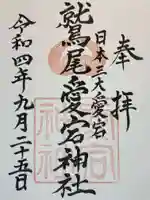 奉拝
日本三大愛宕
鷲尾愛宕神社
令和四年九月二十五日